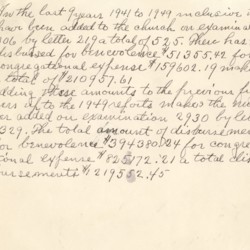 In the last 9 years 1941 to 1949 inclusive
have been added to the church on examination
106 by letter 219 a total of 525. There has
disbursed for benevolence $51355.42 for
congregational expense $159602.19 mak
total of $210957.61
adding these amounts to the previous fi
ers up to the 1949 reports makes the nu
er added on examination 2930 by let
329. The total amount of disbursemen
for benevolence $394380.24 for congre
tional expense $825172.21 a total dis
bursements $1219552.45